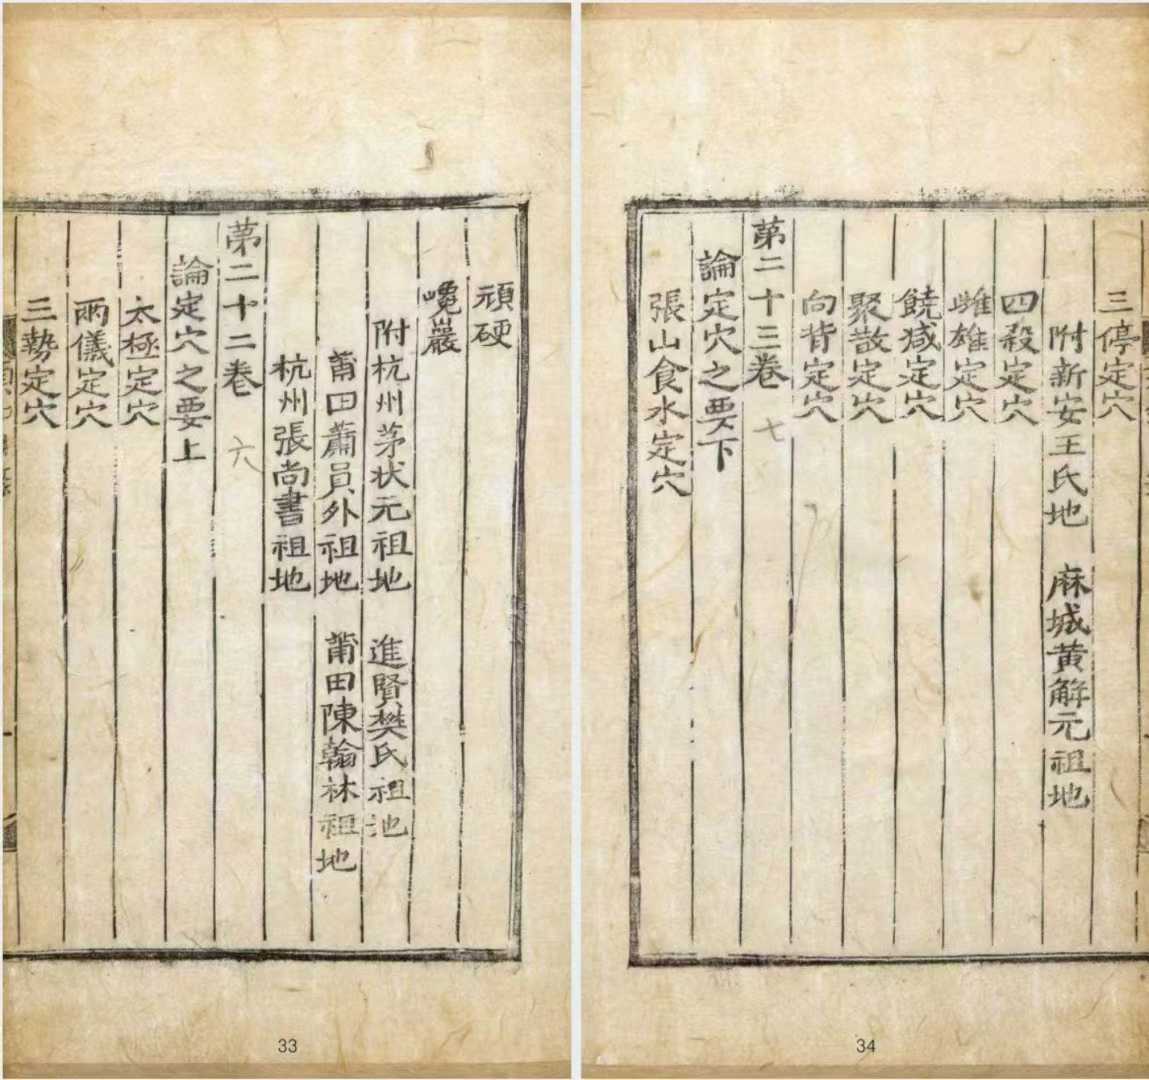 頑硬
巉巖
附杭州茅状元祖地 進賢樊氏祖地
莆田蕭員外祖地 莆田陳翰林祖地
杭州張尚書祖地
苐二十二卷 六
論定穴之要上
太極定穴
兩儀定穴
三勢定穴
33
三停定穴
附新安王氏地 麻城黄解元祖地
四殺定穴
雌雄定穴
饒减定穴
聚散定穴
向背定穴
苐二十三卷 七
論定穴之要下
張山食水定穴
34